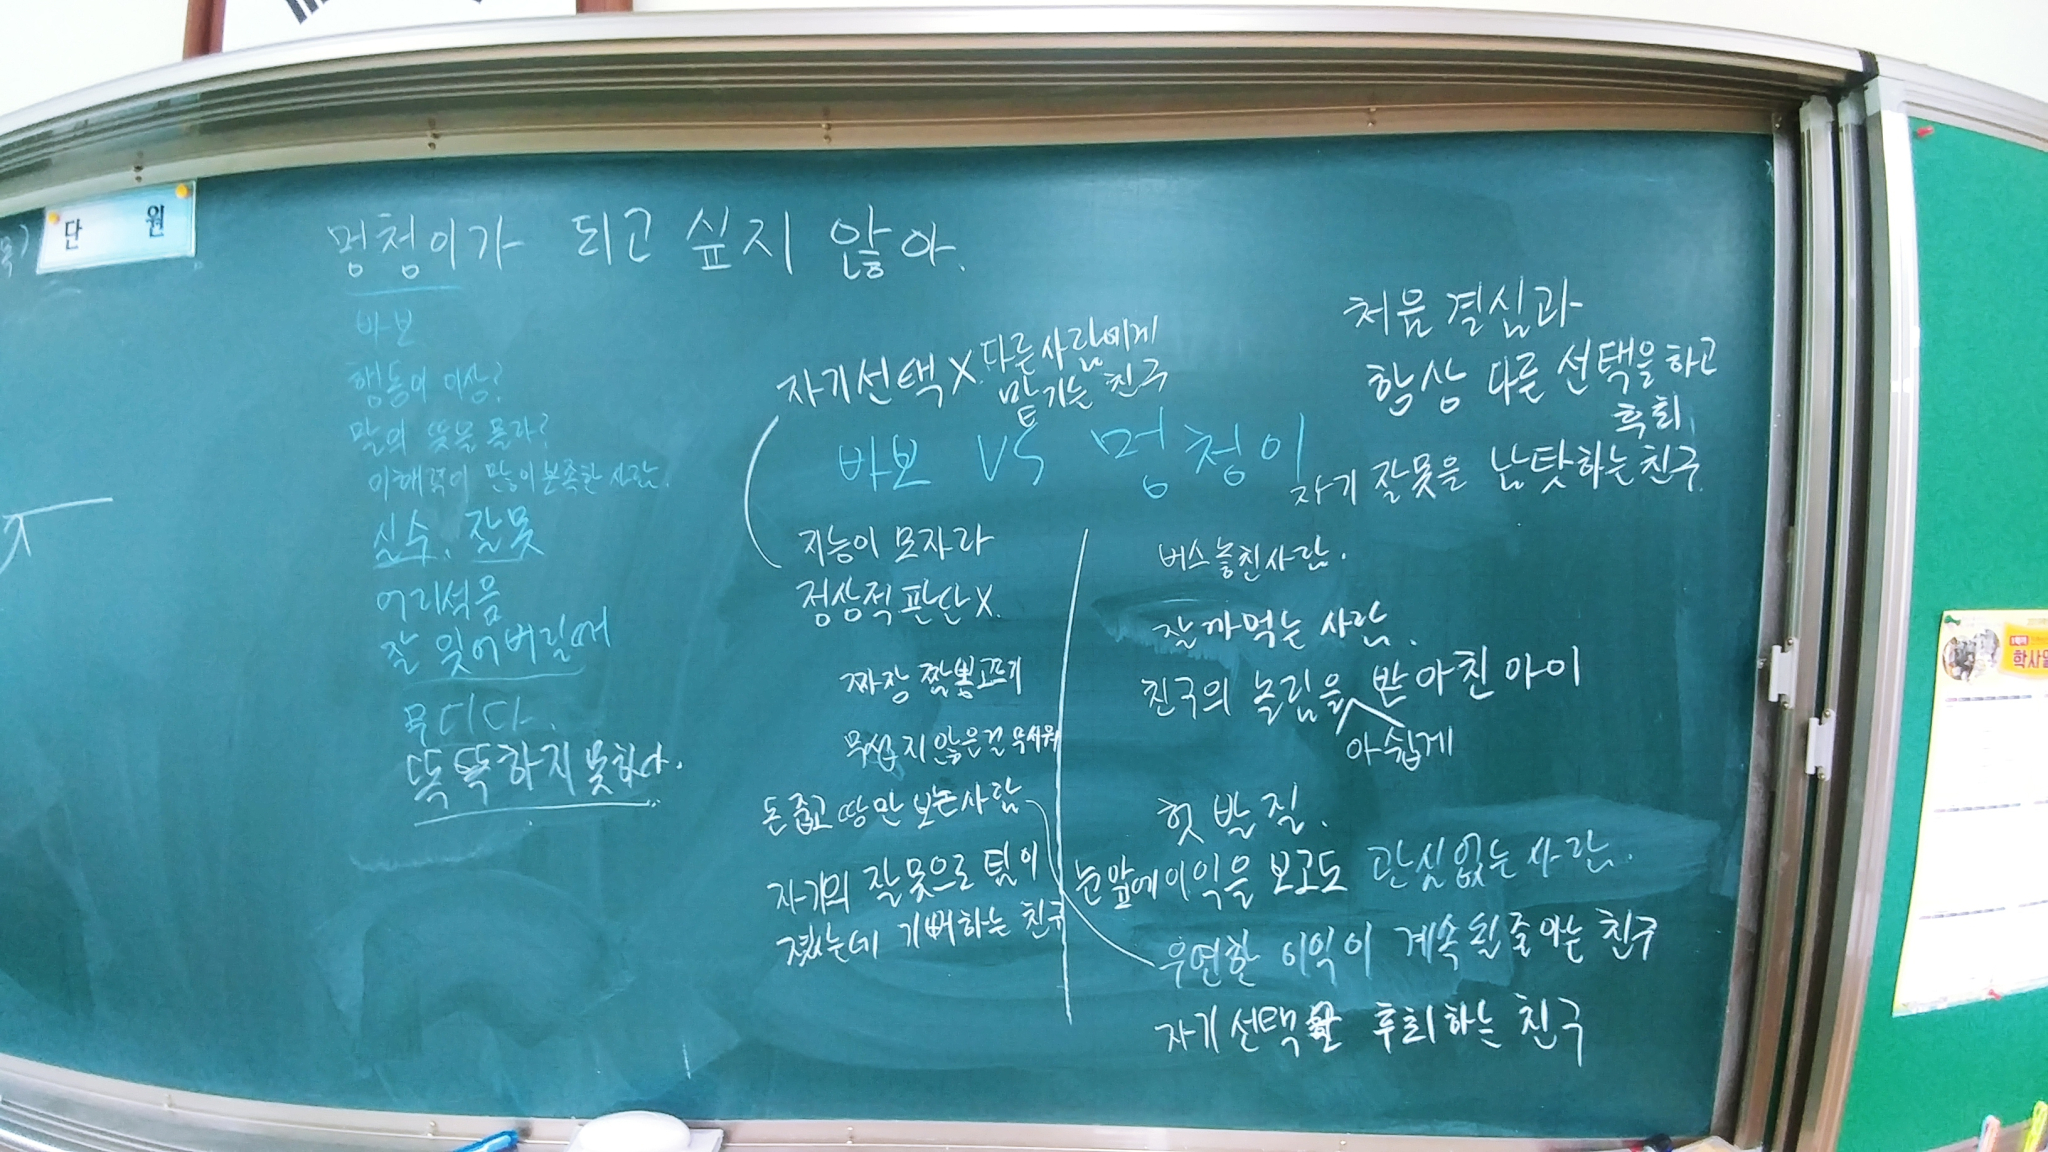 단 원
멍청이가 되고 싶지 않아.
바보
행동이 이상?
말의 뜻을 몰라?
이해력이 많이 부족한 사람.
실수. 잘못
어리석음
잘 잊어버릴때
무디다.
똑똑하지 못하다.
자기선택 X. 다른사람에게
맡기는 친구
바보 VS 멍청이
지능이 모자라
정상적 판단 X.
짜장 짬뽕 고르기
무섭지 않은걸 무서워
돈 줍고 땅만 보는사람
자기의 잘못으로 팀이
졌는데 기뻐하는 친구
처음 결심과
항상 다른 선택을 하고
후회
자기 잘못을 남탓하는 친구.
버스 놓친사람.
잘 까먹는 사람.
친구의 놀림을 받아친 아이
아쉽게
헛발질.
눈앞에 이익을 보고도 관심없는 사람.
우연한 이익이 계속 될줄 아는 친구
자기 선택 후회하는 친구
학사일